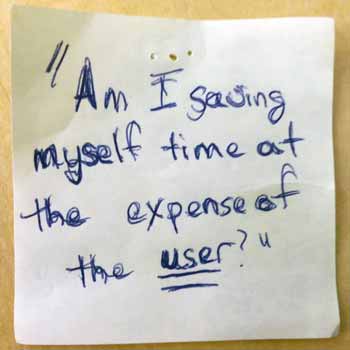 "Am I saving
myself time at
the expense of
the user?"